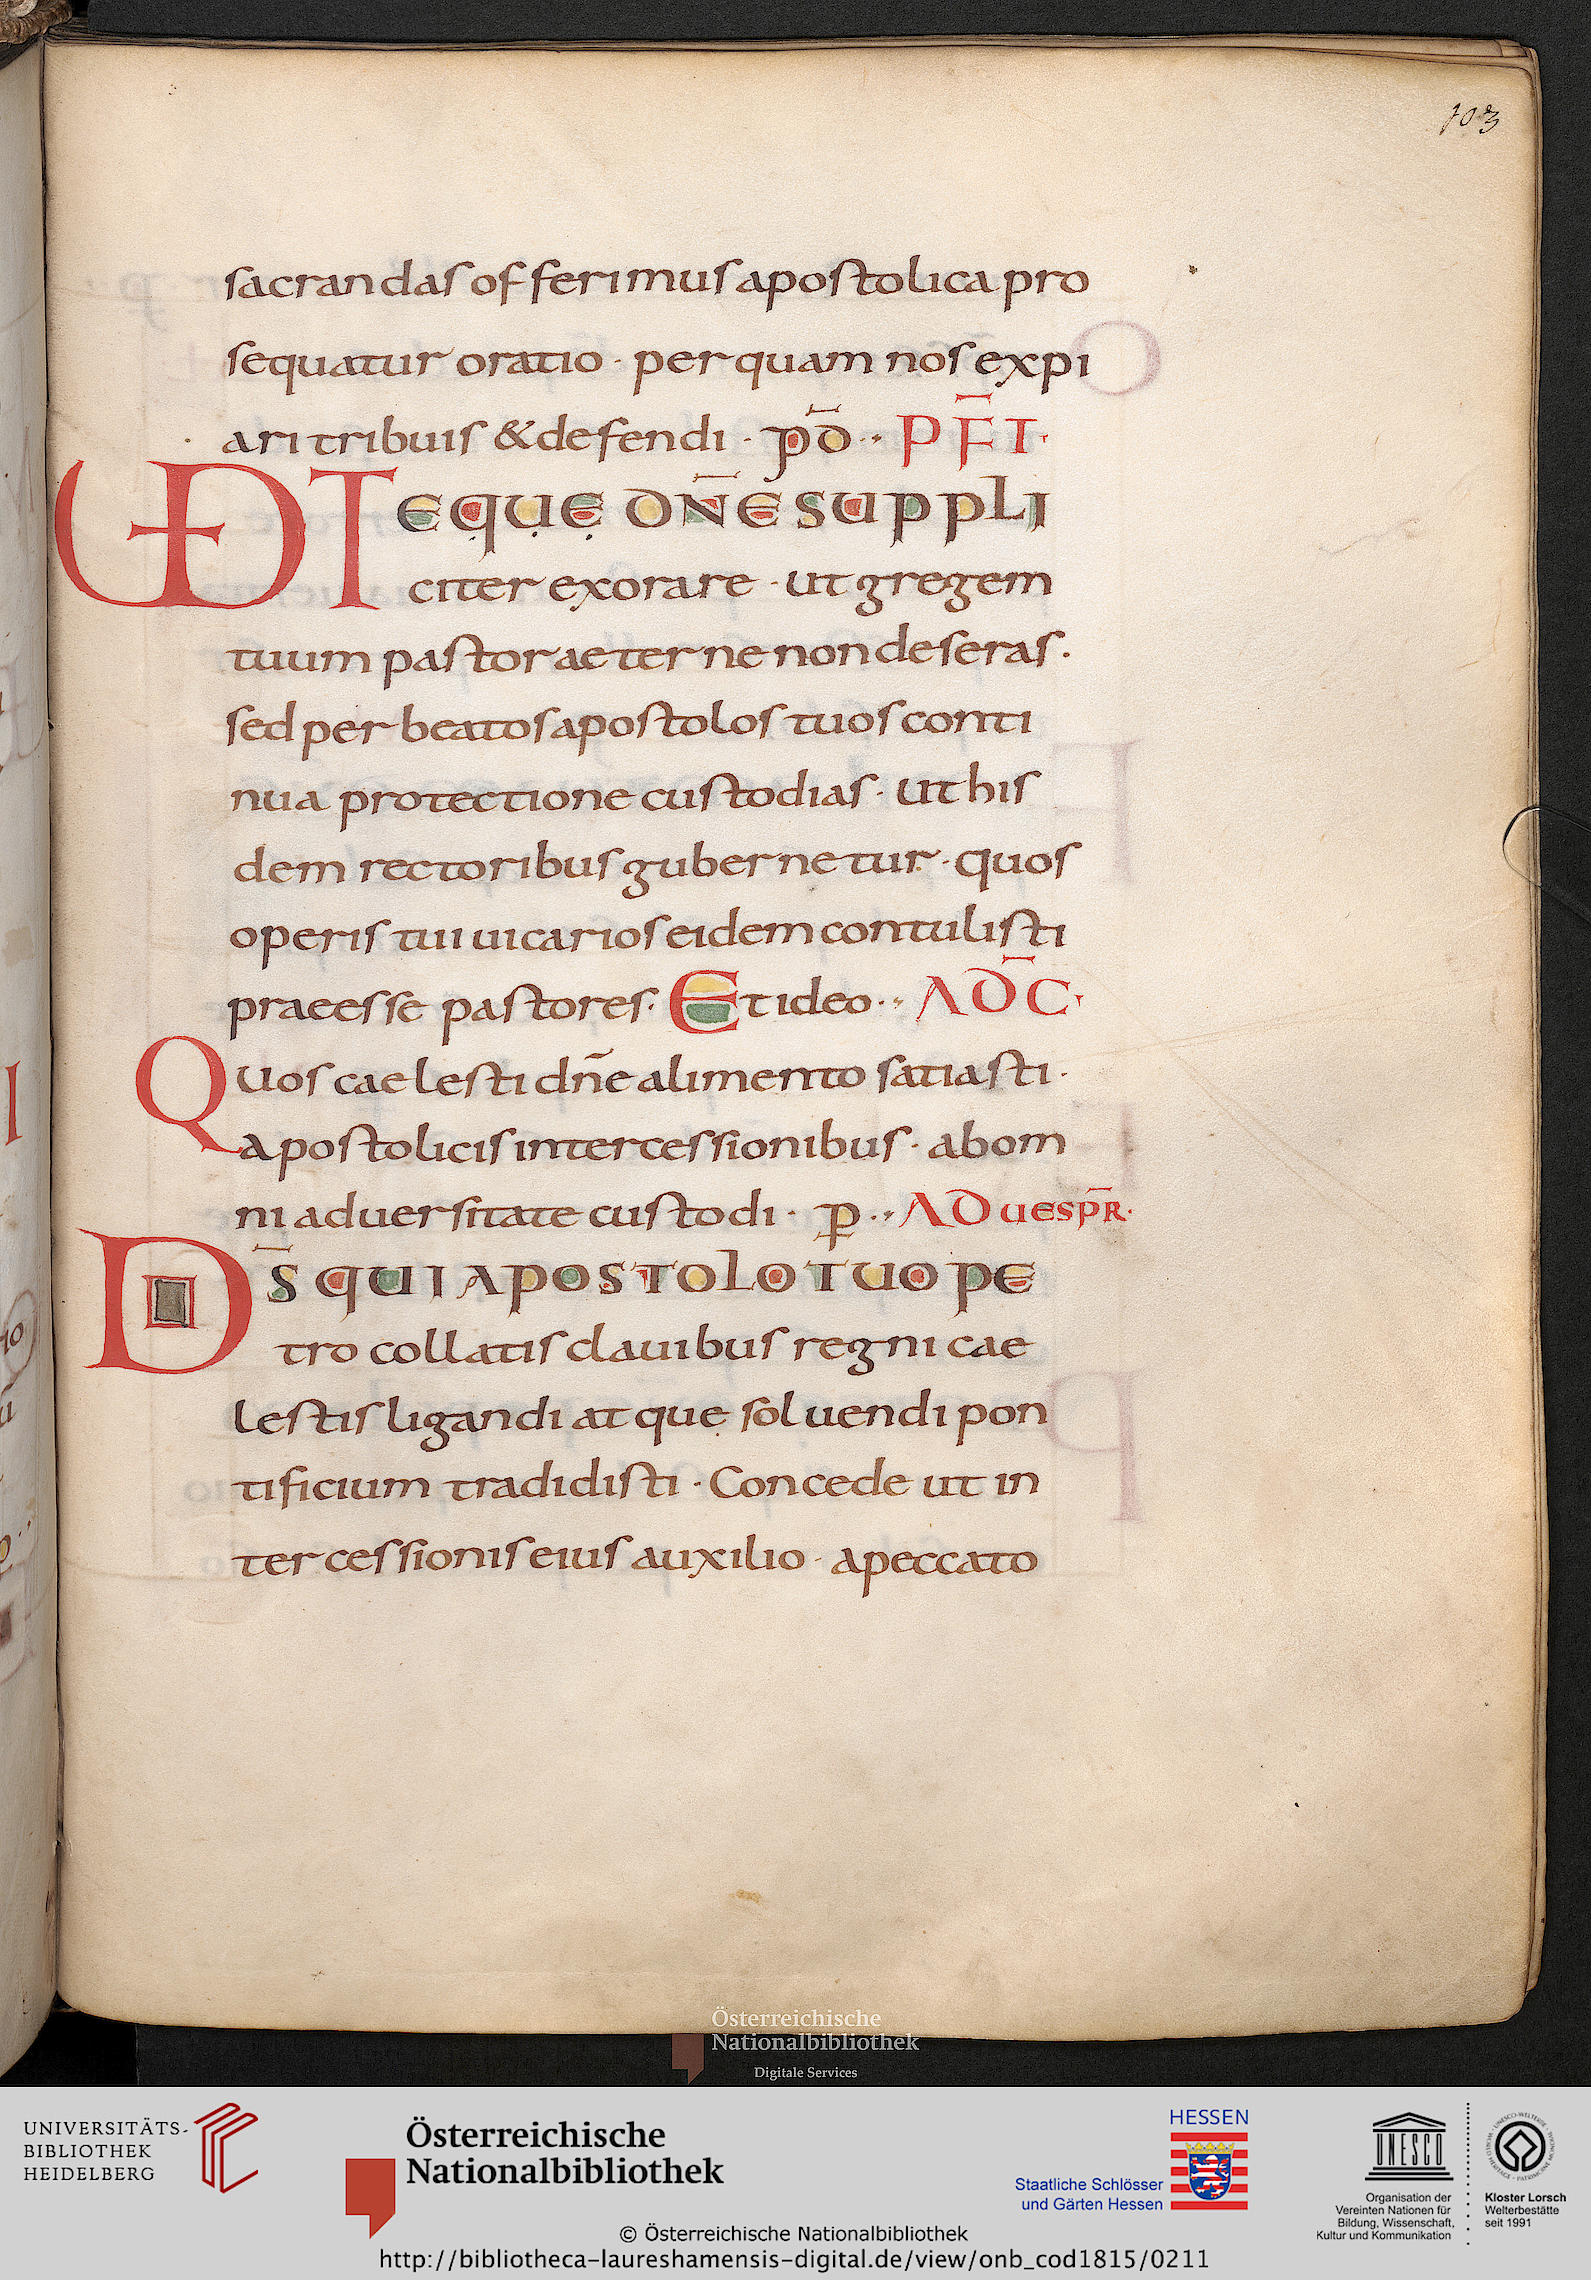 103
sacrandas offerimus apostolica pro
sequatur oratio · per quam nos expi
ari tribuis & defendi · p̄d ·· PF̄T·
UD TEQUE DN̄E SUPPLI
citer exorare · ut gregem
tuum pastor aeterne non deseras ·
sed per beatos apostolos tuos conti
nua protectione custodias · Ut his
dem rectoribus gubernetur · quos
operis tui uicarios eidem contulisti
praeesse pastores · Et ideo ·· AD C̄·
Quos caelesti dn̄e alimento satiasti ·
apostolicis intercessionibus · ab om
ni aduersitate custodi · p̲ ·· AD UESPR̄·
DS̄ QUI APOSTOLO TUO PE
tro collatis clauibus regni cae
lestis ligandi atque soluendi pon
tificium tradidisti · Concede ut in
tercessionis eius auxilio · a peccato
Österreichische
Nationalbibliothek
Digitale Services
UNIVERSITÄTS-
BIBLIOTHEK
HEIDELBERG
Österreichische
Nationalbibliothek
HESSEN
Staatliche Schlösser
und Gärten Hessen
UNESCO
Organisation der
Vereinten Nationen für
Bildung, Wissenschaft,
Kultur und Kommunikation
Kloster Lorsch
Welterbestätte
seit 1991
© Österreichische Nationalbibliothek
http://bibliotheca-laureshamensis-digital.de/view/onb_cod1815/0211